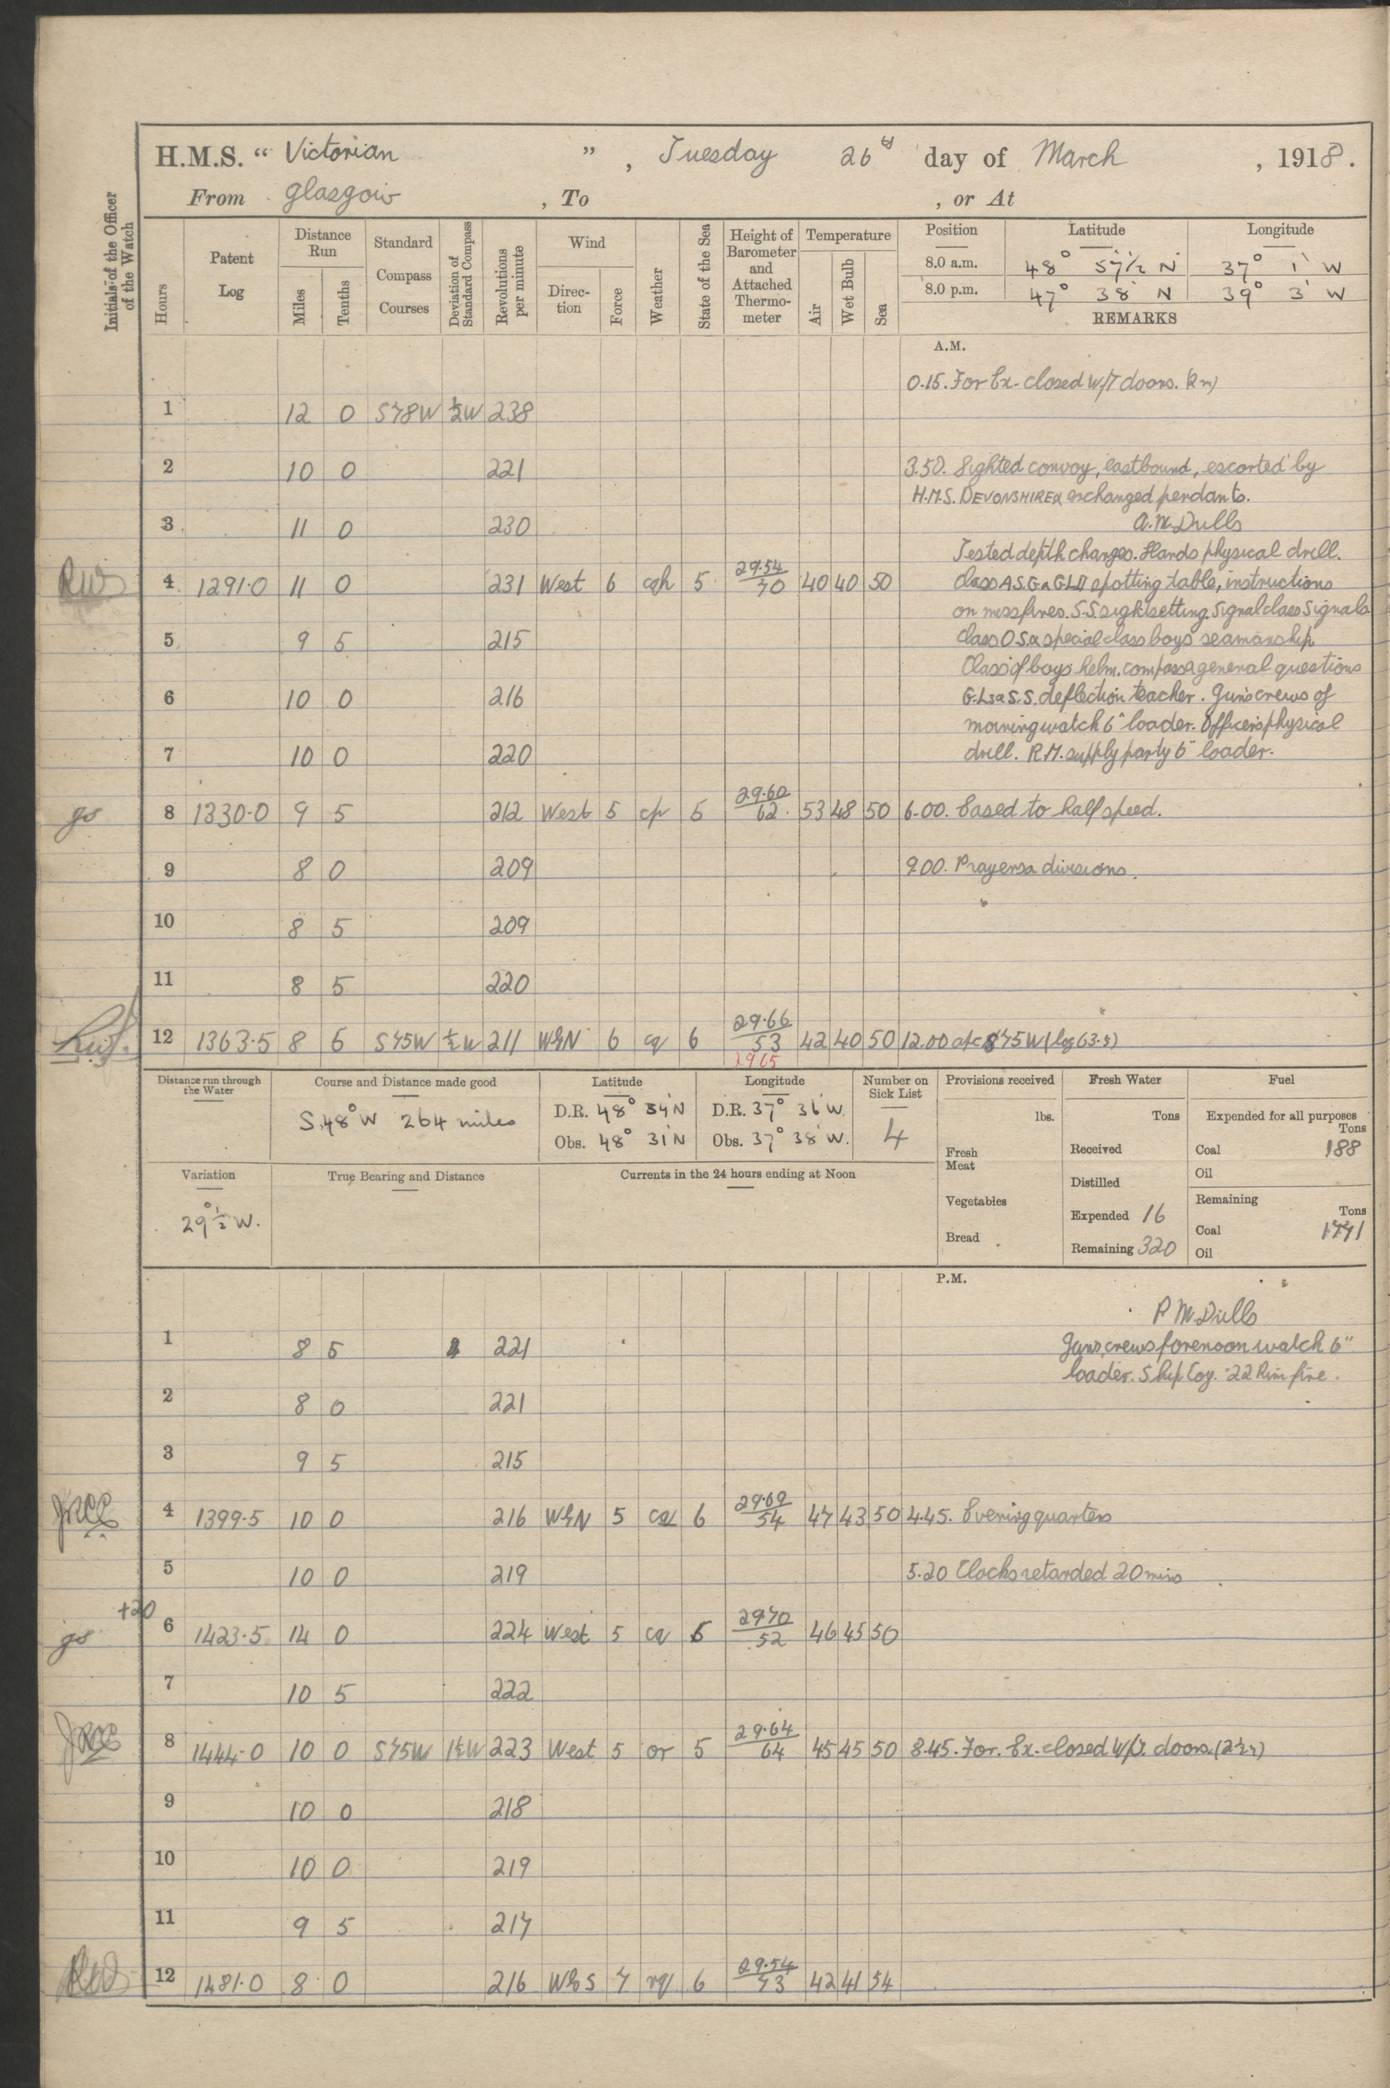 H.M.S. “ Victorian ” , Tuesday 26th day of March , 1918.
From Glasgow , To , or At
Initials of the Officer of the Watch
Hours
Patent Log
Distance Run
Miles
Tenths
Standard Compass Courses
Deviation of Standard Compass
Revolutions per minute
Wind
Direction
Force
Weather
State of the Sea
Height of Barometer and Attached Thermometer
Temperature
Air
Wet Bulb
Sea
Position Latitude Longitude
8.0 a.m. 48° 57½' N 37° 1' W
8.0 p.m. 47° 38' N 39° 3' W
REMARKS
A.M.
0.15. For Ex. closed W/T doors.
1 12 0 S78W ½W 238
2 10 0 221 3.50. Sighted convoy, eastbound, escorted by
H.M.S. DEVONSHIRE & exchanged pendants.
3 11 0 230 A.M. Drills
Tested depth charges. Hands physical drill.
4 1291.0 11 0 231 West 6 cqh 5 29.54/70 40 40 50 Class A.S.G & GLII spotting table, instructions
on missfires. S.S. sightsetting, Signal class Signals
5 9 5 215 Class O.S. & special class boys seamanship
Class of boys helm. compass & general questions
6 10 0 216 G.Ls & S.S. deflection teacher. Guns crews of
morning watch 6" loader. Officers physical
7 10 0 220 drill. R.M. supply party 6" loader.
gs 8 1330.0 9 5 212 West 5 cp 5 29.60/62 53 48 50 6.00. Eased to half speed.
9 8 0 209 9.00. Prayers & divisions.
10 8 5 209
11 8 5 220
12 1363.5 8 6 S75W ½W 211 WbN 6 cq 6 29.66/53 42 40 50 12.00 a/c S75W (log 63.5)
2965
Distance run through the Water
Course and Distance made good
S.48°W 264 miles
Latitude
D.R. 48° 34'N
Obs. 48° 31'N
Longitude
D.R. 37° 36'W.
Obs. 37° 38'W.
Number on Sick List
4
Provisions received
lbs.
Fresh Meat
Vegetables
Bread
Fresh Water
Tons
Received
Distilled
Expended 16
Remaining 320
Fuel
Expended for all purposes
Tons
Coal 188
Oil
Remaining
Tons
Coal 1771
Oil
Variation
29½° W.
True Bearing and Distance
Currents in the 24 hours ending at Noon
P.M.
P.M. Drills
1 8 5 221 Guns crews forenoon watch 6"
loader. Ship Coy. .22 Rim fire.
2 8 0 221
3 9 5 215
4 1399.5 10 0 216 WbN 5 cq 6 29.69/54 47 43 50 4.45. Evening quarters
5 10 0 219 5.20 Clocks retarded 20 mins
+20
gs 6 1423.5 14 0 224 West 5 cq 6 29.70/52 46 45 50
7 10 5 222
8 1444.0 10 0 S75W 1½W 223 West 5 or 5 29.64/64 45 45 50 8.45. For. Ex. closed W/T. doors.
9 10 0 218
10 10 0 219
11 9 5 217
12 1481.0 8 0 216 WbS 7 rq 6 29.54/73 42 41 54